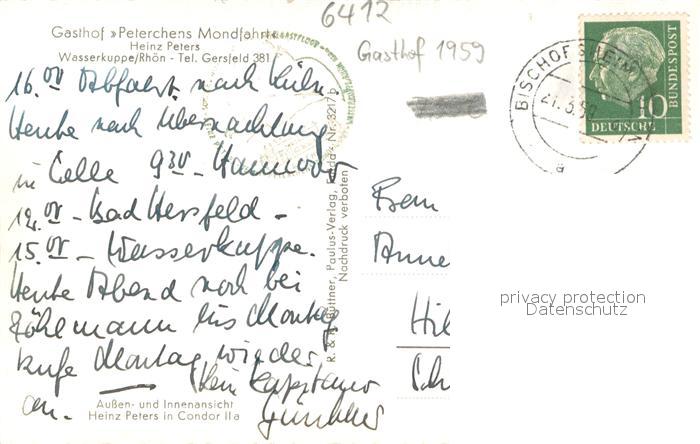 6412
Gasthof »Peterchens Mondfahrt«
Heinz Peters
Wasserkuppe/Rhön - Tel. Gersfeld 381
Gasthof 1959
16.00 Abfahrt nach Köln
Heute nach Übernachtung
in Celle 930 - Hannover
12.00 - Bad Hersfeld -
15.00 - Wasserkuppe.
Heute Abend noch bei
bis Montag
rufe Montag wieder
an. Dein Kapitano
Günther
Außen- und Innenansicht
Heinz Peters in Condor II a
R. & Büttner, Paulus-Verlag, Fulda - Nr. 3217 b
Nachdruck verboten
BISCHOFSHEIM
21.3.59
a
10
DEUTSCHE
BUNDESPOST
Anne
Hil
privacy protection
Datenschutz